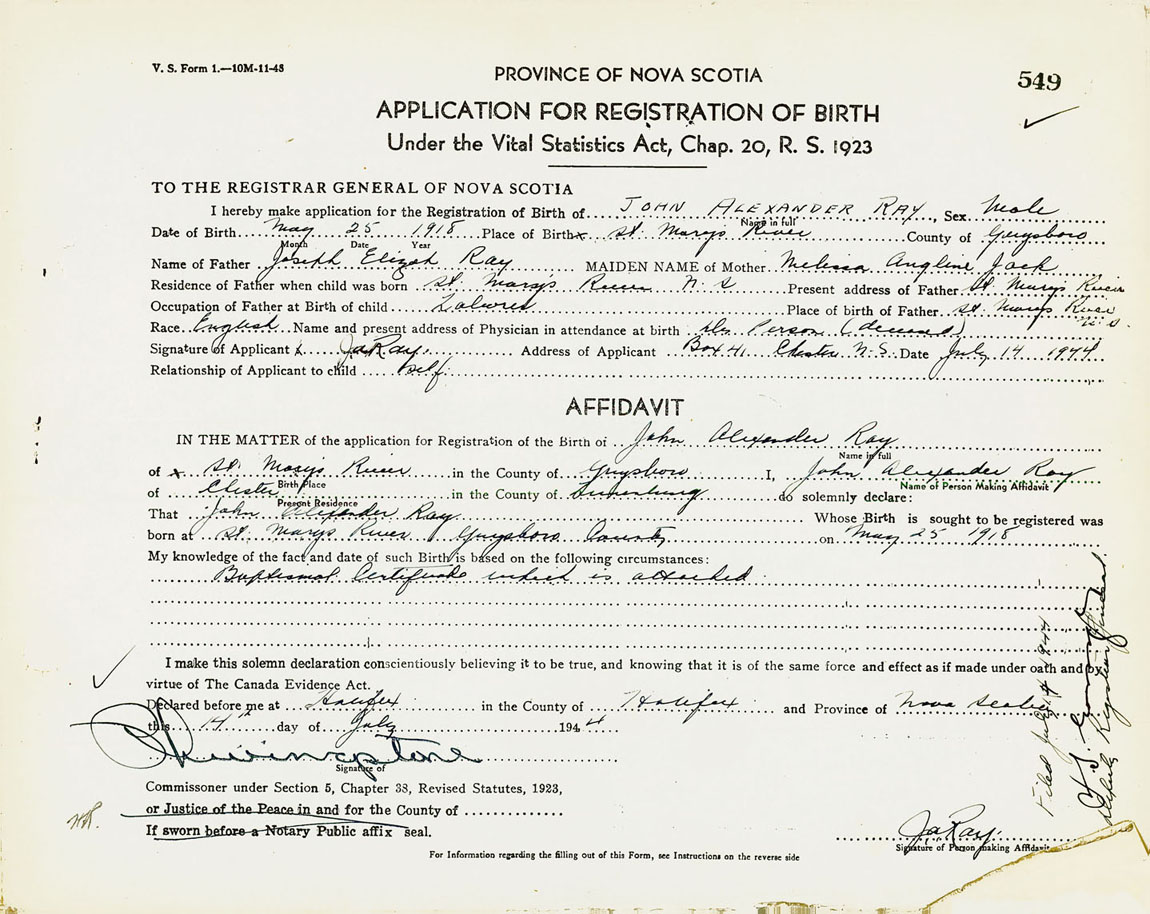 V. S. Form 1.—10M-11-43
PROVINCE OF NOVA SCOTIA
549
APPLICATION FOR REGISTRATION OF BIRTH
Under the Vital Statistics Act, Chap. 20, R. S. 1923
TO THE REGISTRAR GENERAL OF NOVA SCOTIA
I hereby make application for the Registration of Birth of JOHN ALEXANDER RAY, Sex Male
Name in full
Date of Birth May 25 1918 Place of Birth x St. Marys River County of Guysboro
Month Date Year
Name of Father Joseph Elizah Ray MAIDEN NAME of Mother Melissa Angline Jack
Residence of Father when child was born St. Marys River N. S Present address of Father St. Marys River
Occupation of Father at Birth of child Labourer Place of birth of Father St. Marys River N. S.
Race English Name and present address of Physician in attendance at birth
Signature of Applicant x JaRay. Address of Applicant Box 41 Chester N. S. Date July 14 1944
Relationship of Applicant to child self.
AFFIDAVIT
IN THE MATTER of the application for Registration of the Birth of John Alexander Ray
Name in full
of x St. Marys River in the County of Guysboro I, John Alexander Ray
Birth Place
Name of Person Making Affidavit
of Chester in the County of Lunenburg do solemnly declare:
Present Residence
That John Alexander Ray Whose Birth is sought to be registered was
born at St. Marys River Guysboro County on May 25 1918
My knowledge of the fact and date of such Birth is based on the following circumstances:
Baptismal Certificate which is attached
I make this solemn declaration conscientiously believing it to be true, and knowing that it is of the same force and effect as if made under oath and by
virtue of The Canada Evidence Act.
Declared before me at Halifax in the County of Halifax and Province of Nova Scotia
this 14th day of July 1944
Signature of
Commissoner under Section 5, Chapter 38, Revised Statutes, 1923,
or Justice of the Peace in and for the County of
If sworn before a Notary Public affix seal.
JaRay.
Signature of Person making Affidavit
For Information regarding the filling out of this Form, see Instructions on the reverse side
Filed July 14 1944
Deputy Registrar General